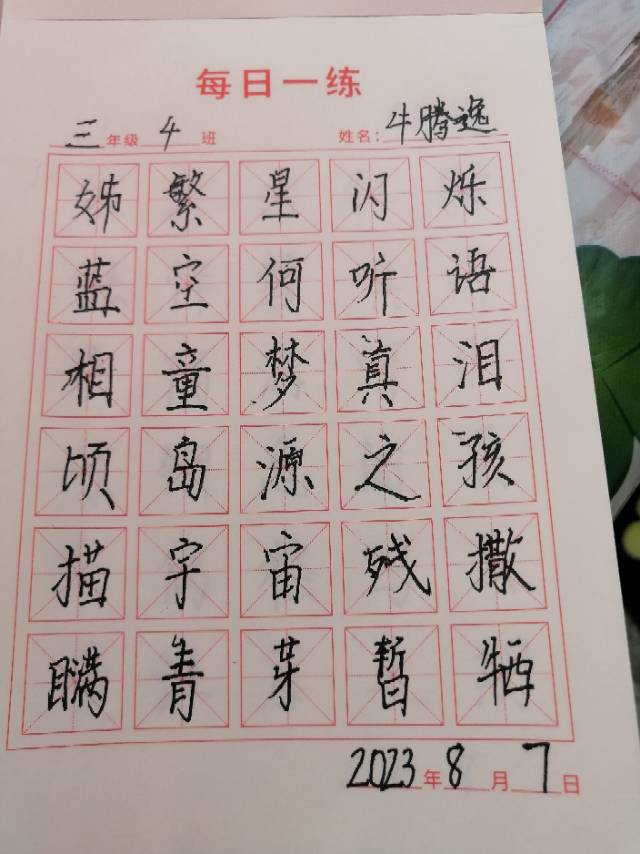 每日一练
三年级4班 姓名:牛腾逸
姊繁星闪烁
蓝空何听语
相童梦真泪
顷岛源之孩
描宇宙残撒
瞒青芽暂牺
2023年8月7日